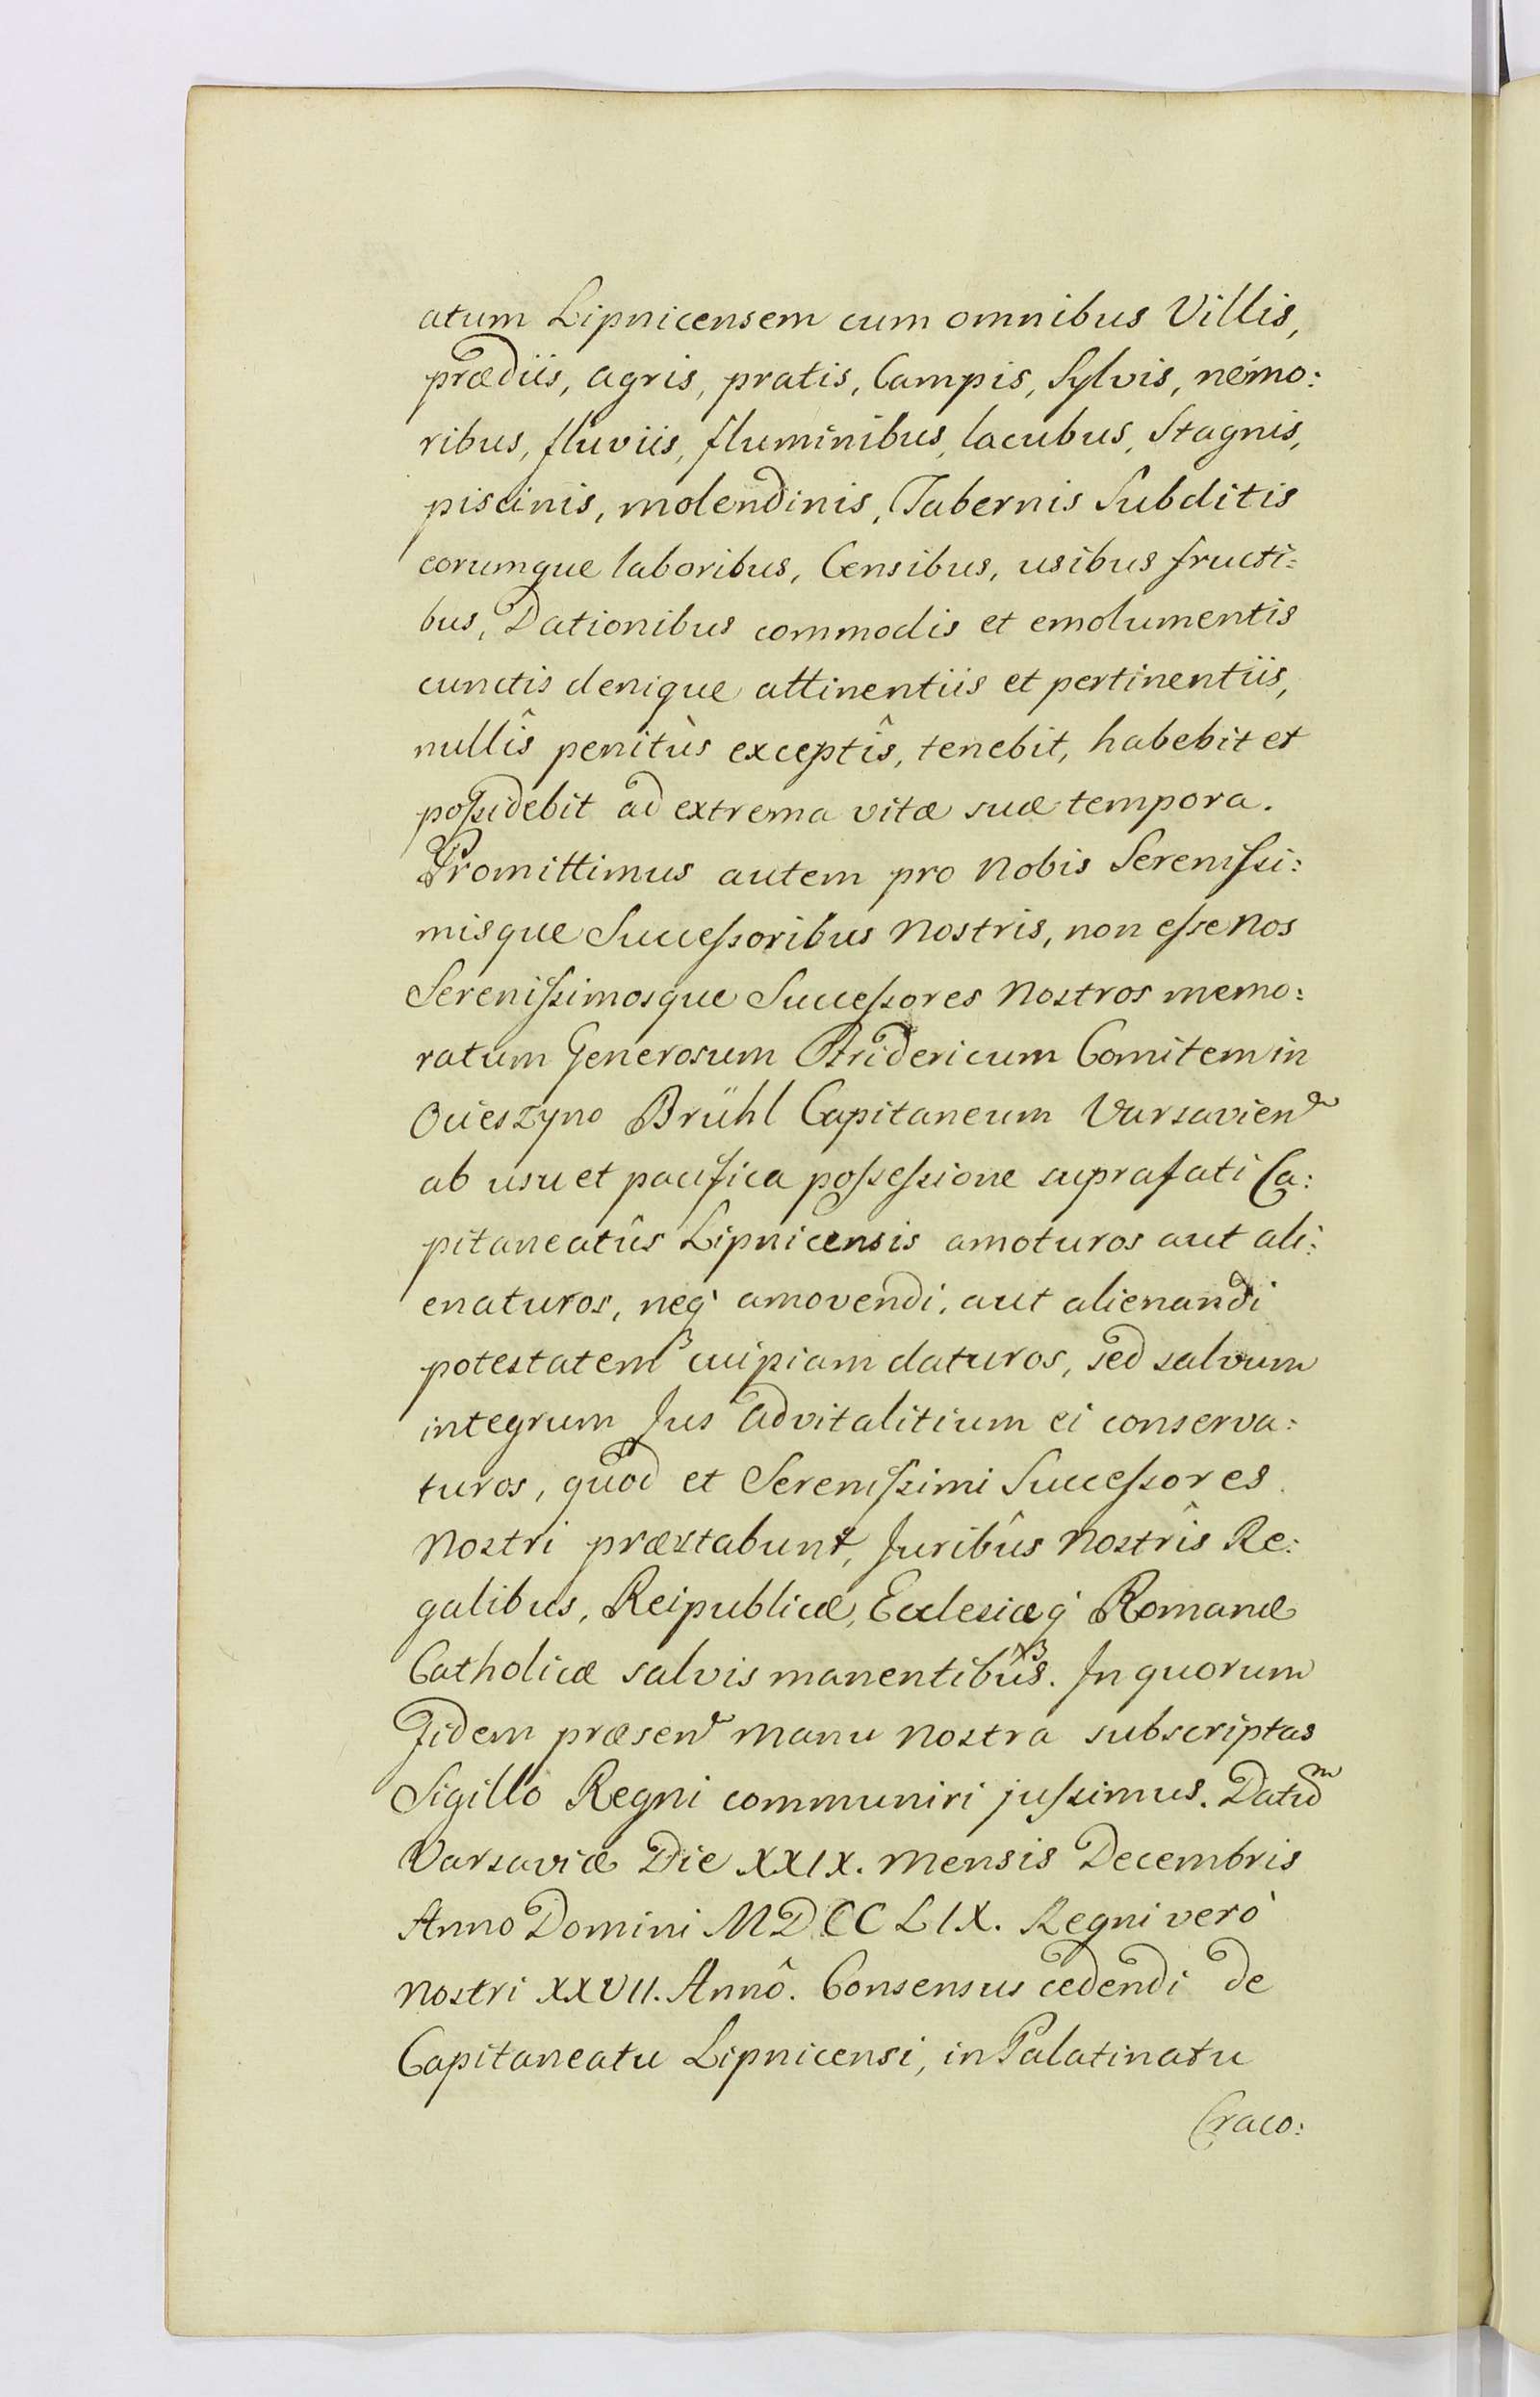 atum Lipnicensem cum omnibus Villis,
prædiis, agris, pratis, Campis, Sylvis, nemo:
ribus, fluviis, fluminibus, lacubus, Stagnis,
piscinis, molendinis, Tabernis Subditis
eorumque laboribus, Censibus, usibus fructi:
bus, Dationibus commodis et emolumentis
cunctis denique attinentiis et pertinentiis,
nullîs penitùs exceptîs, tenebit, habebit et
poſsidebit ad extrema vitæ suæ tempora.
Promittimus autem pro Nobis Sereniſsi:
misque Succeſsoribus Nostris, non eſse Nos
Sereniſsimosque Succeſsores Nostros memo:
ratum Generosum Fridericum Comitem in
Ocieszyno Brühl Capitaneum Varsavien
ab usu et pacifica poſseſsione suprafati Ca:
pitaneatûs Lipnicensis amoturos aut ali:
enaturos, neq' amovendi, aut alienandi
potestatem cuipiam daturos, sed salvum
integrum Jus advitalitium ei conserva:
turos, quod et Sereniſsimi Succeſsores
Nostri præstabunt, Juribûs Nostrîs Re:
galibus, Reipublicæ, Ecclesiæq' Romanæ
Catholicæ salvis manentibûs. In quorum
Fidem præsen manu Nostra subscriptas
Sigillo Regni communiri juſsimus. Datum
Varsaviæ Die XXIX. Mensis Decembris
Anno Domini MDCCLIX. Regni verò
Nostri XXVII. Annô. Consensus cedendi de
Capitaneatu Lipnicensi, in Palatinatu
Craco: